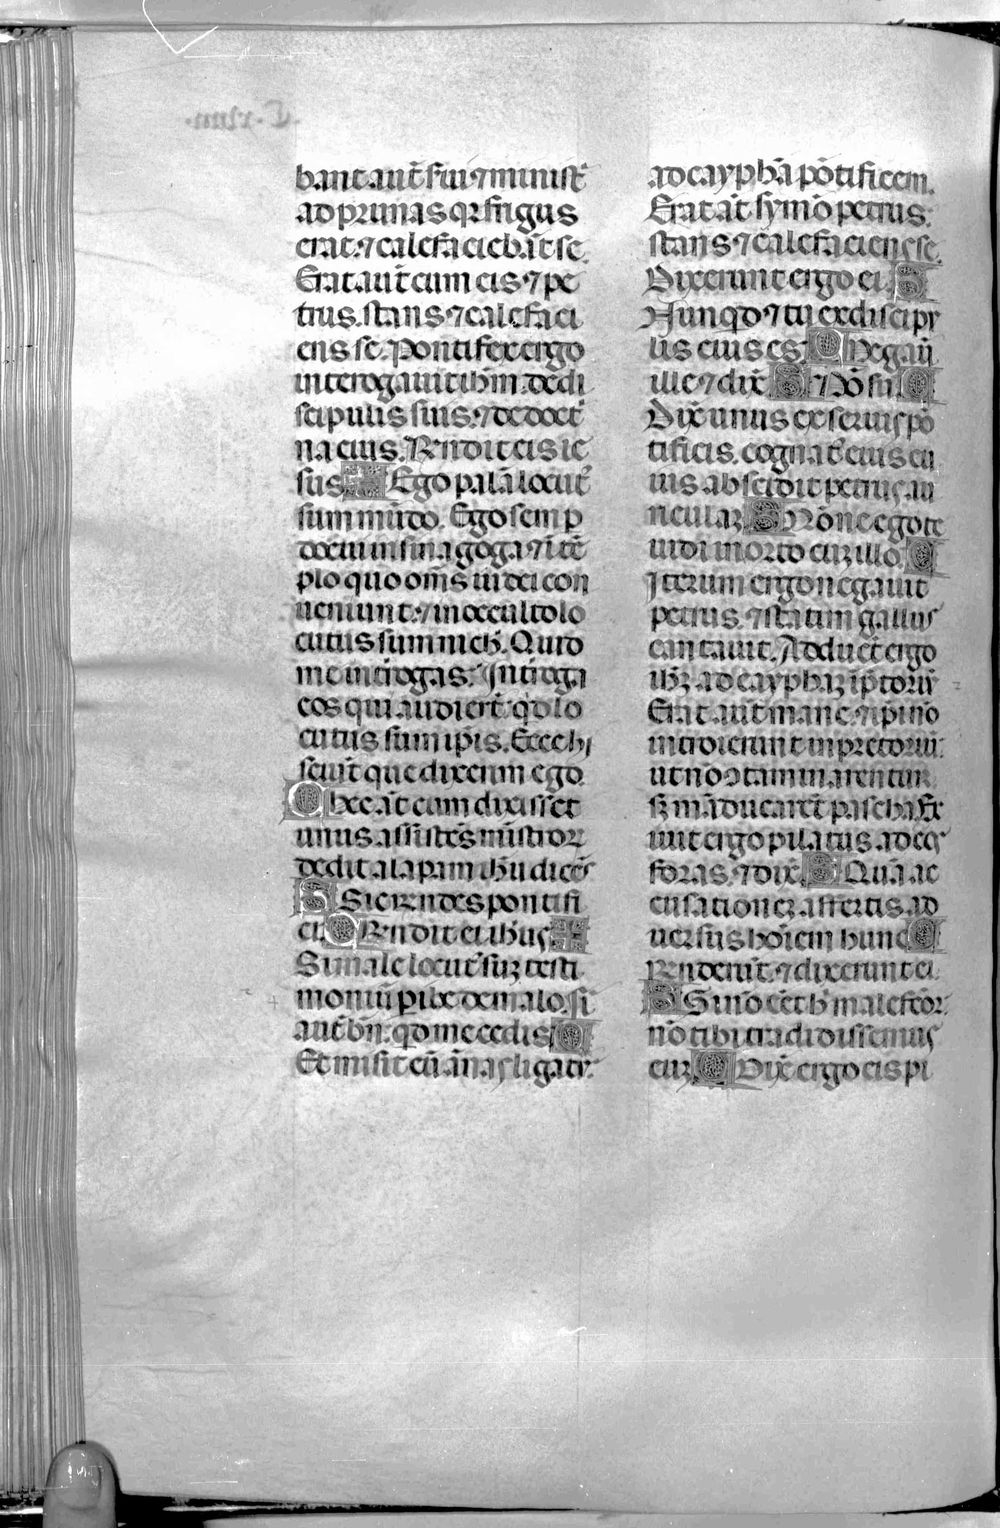 bant aut̄ s̄ui ⁊ minist̄
ad prunas qr̄ frigus
erat. ⁊ calefaciebāt se.
Erat aut̄ cum eis ⁊ pe
trus. stans ⁊ calefaci
ens se. Pontifex ergo
interogauit ih̄m. de di
scipulis suis. ⁊ de doct̄
na eius. R̄ndit eis ie
sus ✠ Ego palā locut᷒
sum mūdo. Ego semp̄
docui in sinagoga ⁊ ī tē
plo quo om̄s iudei con
ueniunt. ⁊ in occulto lo
cutus sum nich̄. Quid
me int̄rogas. Int̄roga
eos qui audiert̄. qd̄ lo
cutus sum ip̄is. Ecce hi
sciūt que dixerim ego.
C hec āt cum dixisset
unus assistēs ministror̄
dedit alapam ih̄u dicēs
S Sic r̄ndes pontifi
ci. C R̄ndit ei ih̄us ✠
Si male locut᷒ sum testi
moniū p̄ibe de malo. Si
aut̄ bn̄. qd̄ me cedis C
Et misit eū ānas ligatū
ad cayphā pōtificem.
Erat āt symō petrus.
stans ⁊ calefaciens se.
Dixerunt ergo ei. S
Nunqd̄ ⁊ tu ex discipu
lis eius es. C Negauit
ille ⁊ dix̄ S Nō sū C
Dix̄ unus ex seruis pō
tificis. cognat᷒ eius cu
ius abscidit petrus au
riculaȝ S Nōne ego te
uidi in orto cuȝ illo. C
Iterum ergo negauit
petrus. ⁊ statim gallus
cantauit. Adducūt ergo
ih̄ȝ ad cayphaȝ ī p̄toriū
Erat aut̄ mane. ⁊ ip̄i nō
introierunt in pretoriū:
ut nō ↄtaminarentur
sȝ māducarēt pascha. Ex
iuit ergo pilatus ad eos
foras. ⁊ dix̄. S Quā ac
cusationeȝ affertis ad
uersus hōiem hunc C
R̄nderūt. ⁊ dixerunt ei
S Si nō eēt h̄ malefc̄or
nō tibi tradidissemus
euȝ. C Dix̄ ergo eis pi